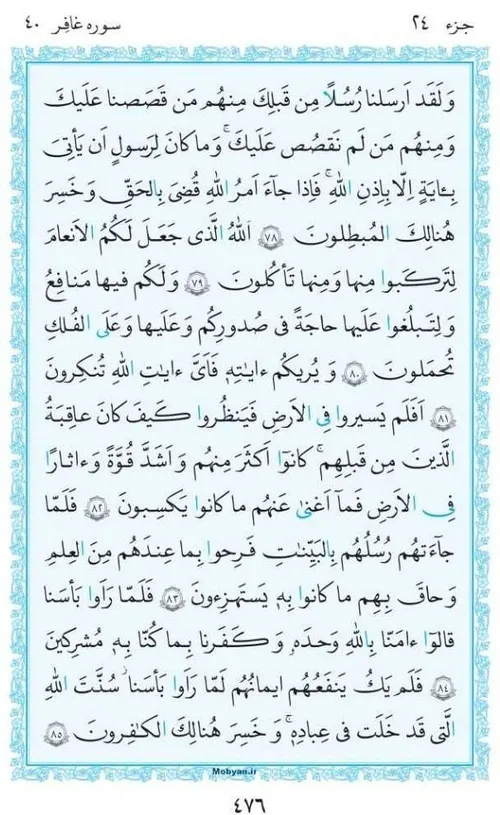 جزء ۲۴
سوره غافِر ۴۰
وَ لَقَد اَرسَلنا رُسُلًا مِن قَبلِكَ مِنهُم مَن قَصَصنا عَلَيكَ
وَ مِنهُم مَن لَم نَقصُص عَلَيكَ ۚ وَ ما كانَ لِرَسولٍ اَن يَأتِىَ
بِـٔايَةٍ اِلّا بِاِذنِ اللهِ ۚ فَاِذا جآءَ اَمرُ اللهِ قُضِىَ بِالحَقِّ وَ خَسِرَ
هُنالِكَ المُبطِلونَ ﴿۷۸﴾ اَللهُ الَّذى جَعَلَ لَكُمُ الاَنعامَ
لِتَركَبوا مِنها وَ مِنها تَأكُلونَ ﴿۷۹﴾ وَ لَكُم فيها مَنافِعُ
وَ لِتَبلُغوا عَلَيها حاجَةً فى صُدورِكُم وَ عَلَيها وَ عَلَى الفُلكِ
تُحمَلونَ ﴿۸۰﴾ وَ يُريكُم ءاياتِهٖ فَاَىَّ ءاياتِ اللهِ تُنكِرونَ
﴿۸۱﴾ اَفَلَم يَسيروا فِى الاَرضِ فَيَنظُروا كَيفَ كانَ عاقِبَةُ
الَّذينَ مِن قَبلِهِم ۚ كانوٓا اَكثَرَ مِنهُم وَ اَشَدَّ قُوَّةً وَ ءاثارًا
فِى الاَرضِ فَمآ اَغنىٰ عَنهُم ما كانوا يَكسِبونَ ﴿۸۲﴾ فَلَمّا
جآءَتهُم رُسُلُهُم بِالبَيِّنٰتِ فَرِحوا بِما عِندَهُم مِنَ العِلمِ
وَ حاقَ بِهِم ما كانوا بِهٖ يَستَهزِءونَ ﴿۸۳﴾ فَلَمّا رَاَوا بَأسَنا
قالوٓا ءامَنّا بِاللهِ وَحدَهٗ وَ كَفَرنا بِما كُنّا بِهٖ مُشرِكينَ
﴿۸۴﴾ فَلَم يَكُ يَنفَعُهُم ايمانُهُم لَمّا رَاَوا بَأسَنا ۖ سُنَّتَ اللهِ
الَّتى قَد خَلَت فى عِبادِهٖ ۚ وَ خَسِرَ هُنالِكَ الكٰفِرونَ ﴿۸۵﴾
Mobyan.ir
۴۷۶